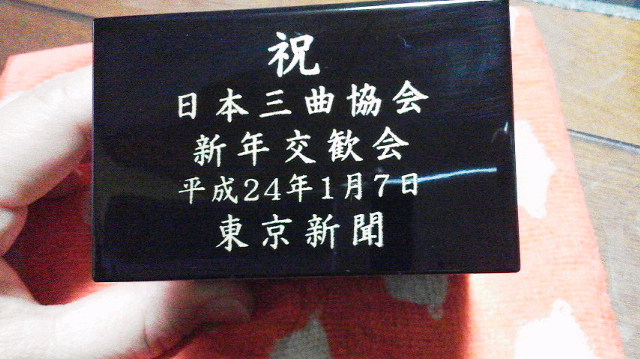 祝
日本三曲協会
新年交歓会
平成24年1月7日
東京新聞